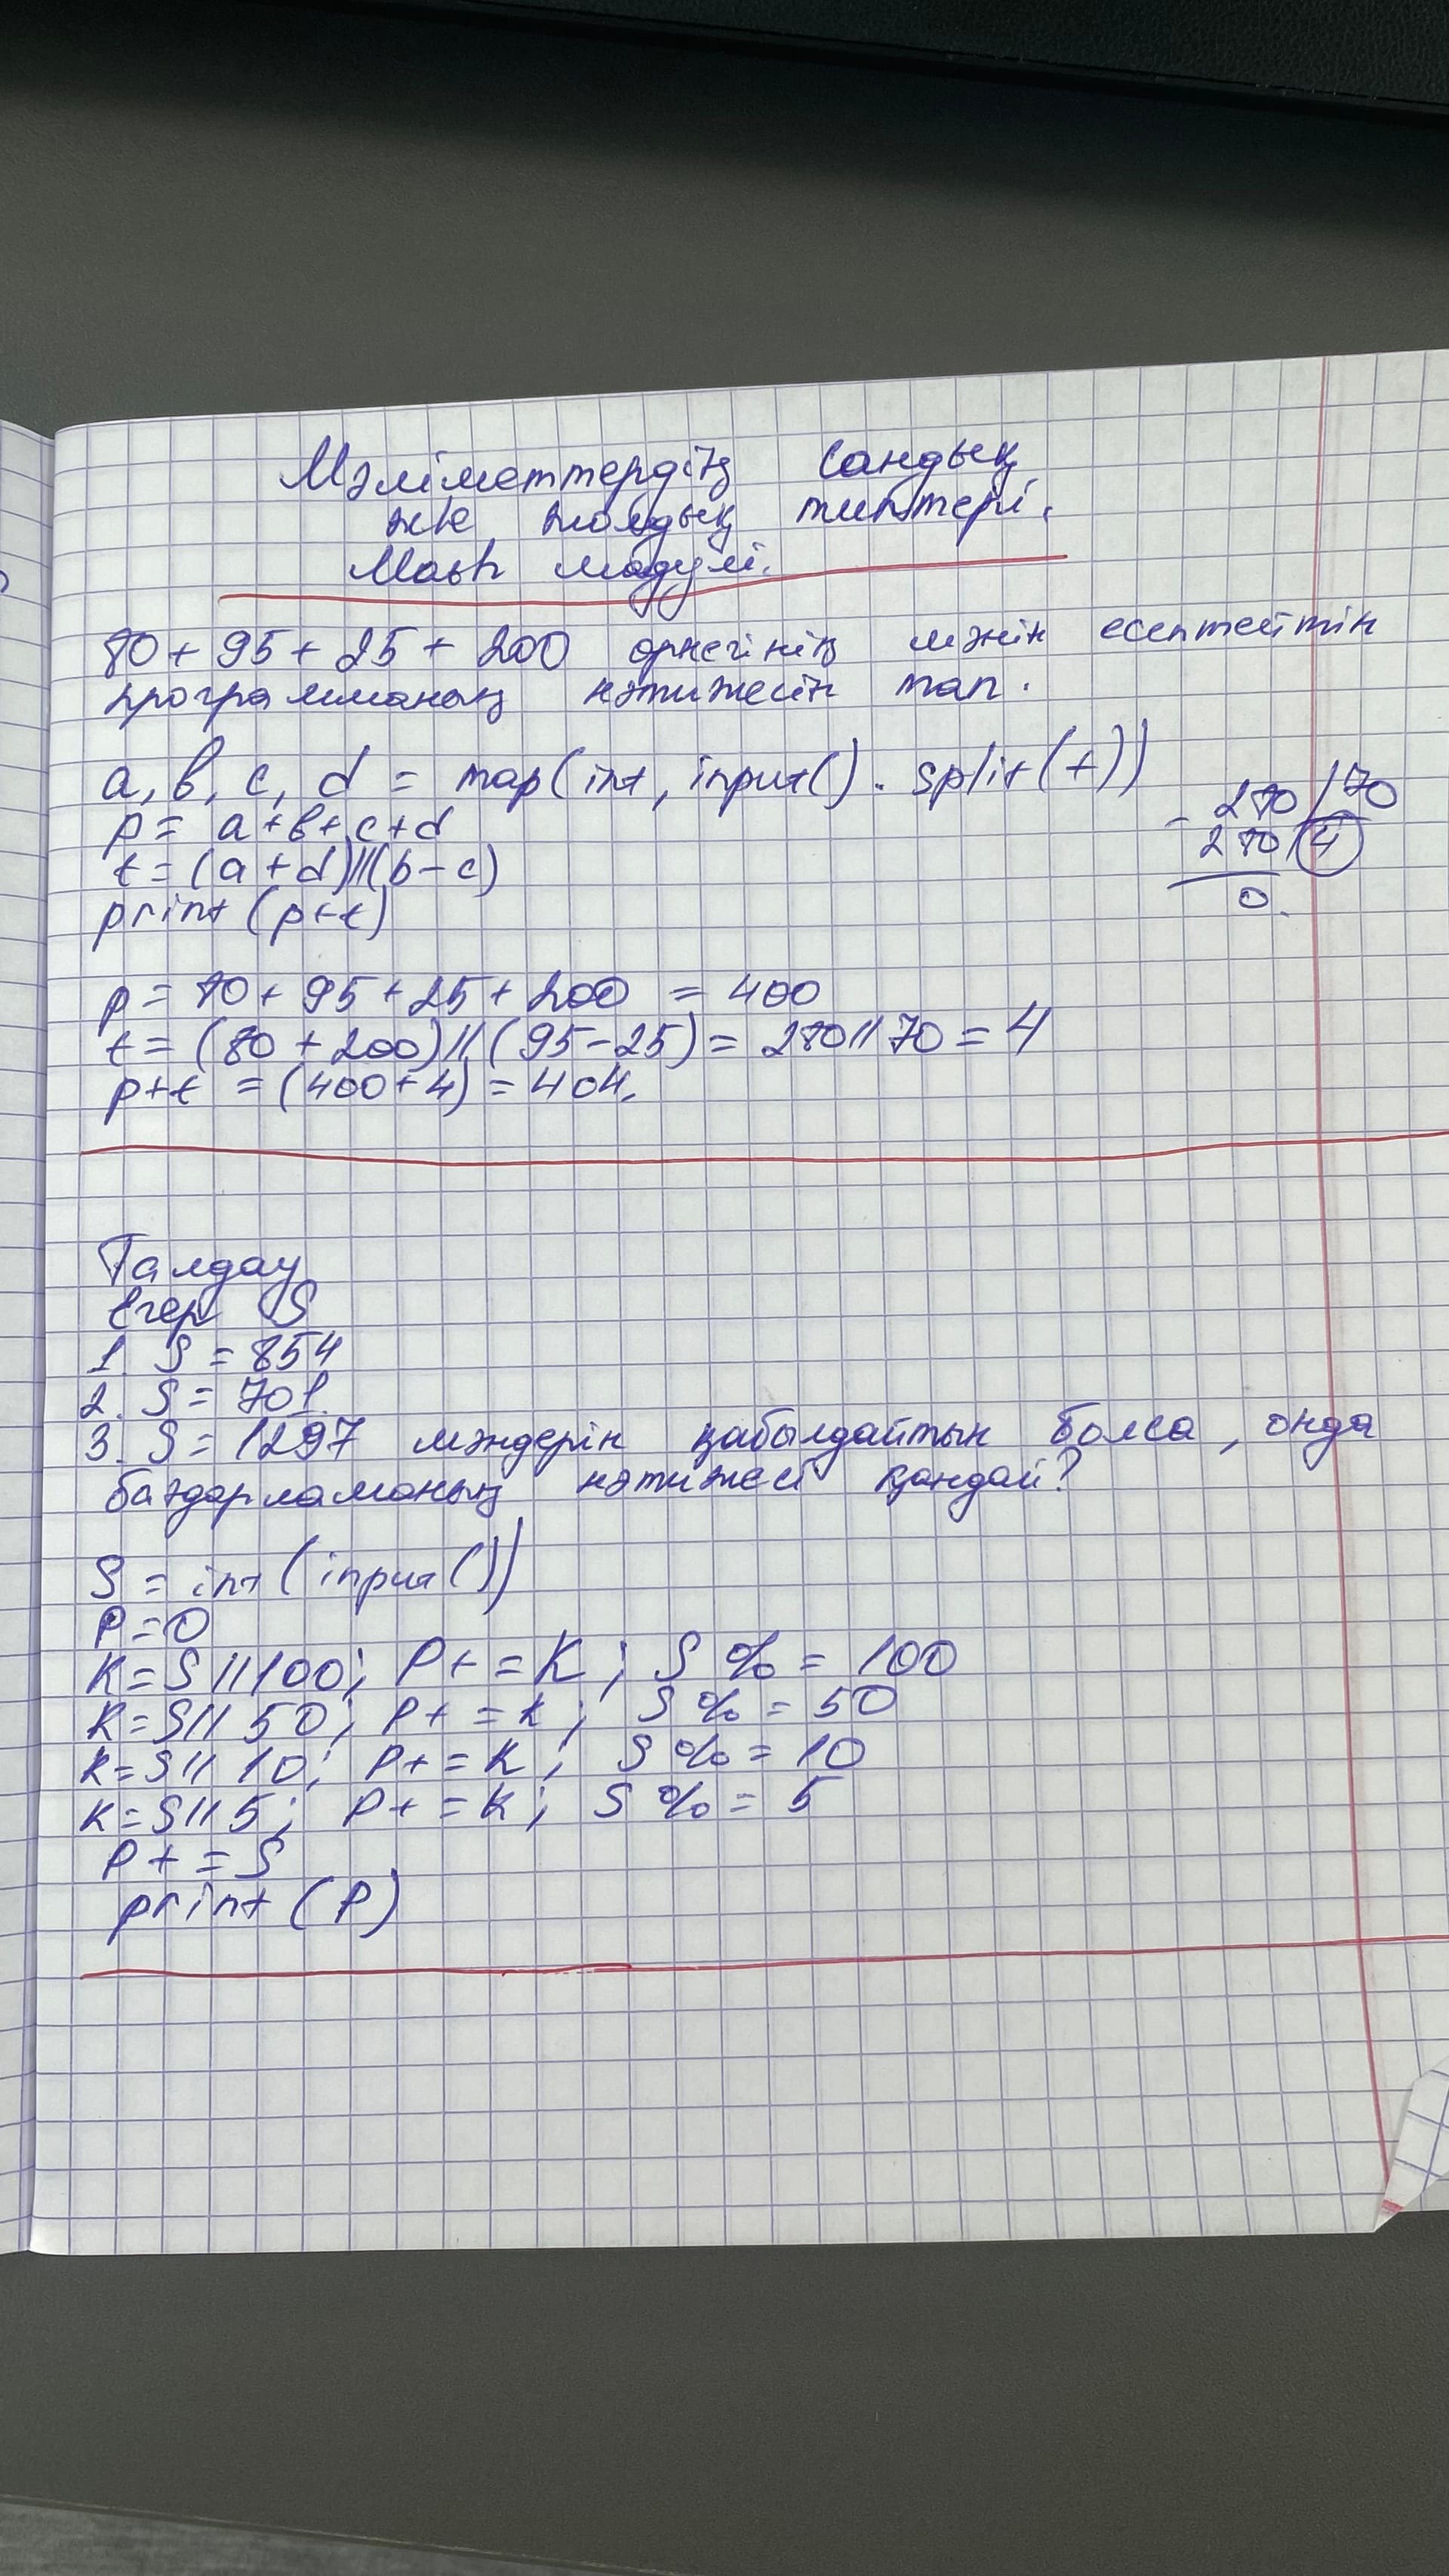 Мәліметтердің сандық
жіе жолдық типтері.
Math модулі.
80 + 95 + 25 + 200 өрнегінің мәнін есептейтін
программаның нәтижесін тап.
a, b, c, d = map(int, input(). split(+))
p = a+b+c+d
t = (a+d)//(b-c)
print (p+t)
280 / 70
- 280 4
0.
p = 80 + 95 + 25 + 200 = 400
t = (80 + 200)//(95-25) = 280//70 = 4
p+t = (400+4) = 404.
Талдау
Егер S
1. S = 854
2. S = 701.
3. S = 1297 мәндерін қабылдайтын болса, онда
бағдарламаның нәтижесі қандай?
S = int (input())
P = 0
K = S // 100; P+ = K; S % = 100
K = S // 50; P+ = K; S % = 50
K = S // 10; P+ = K; S % = 10
K = S // 5; P+ = K; S % = 5
P+ = S
print (P)